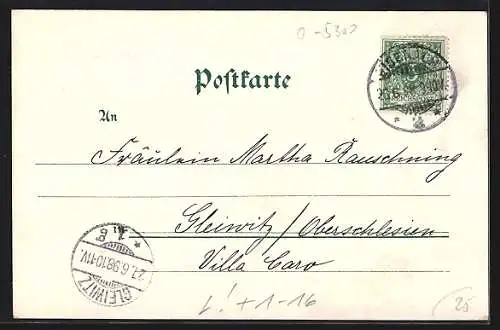 0-5302
Postkarte
An
Fräulein Martha Rauschning
Gleiwitz / Oberschlesien
Villa Caro
GLEIWITZ
27.6.98.10-11V.
L! + 1-16
25